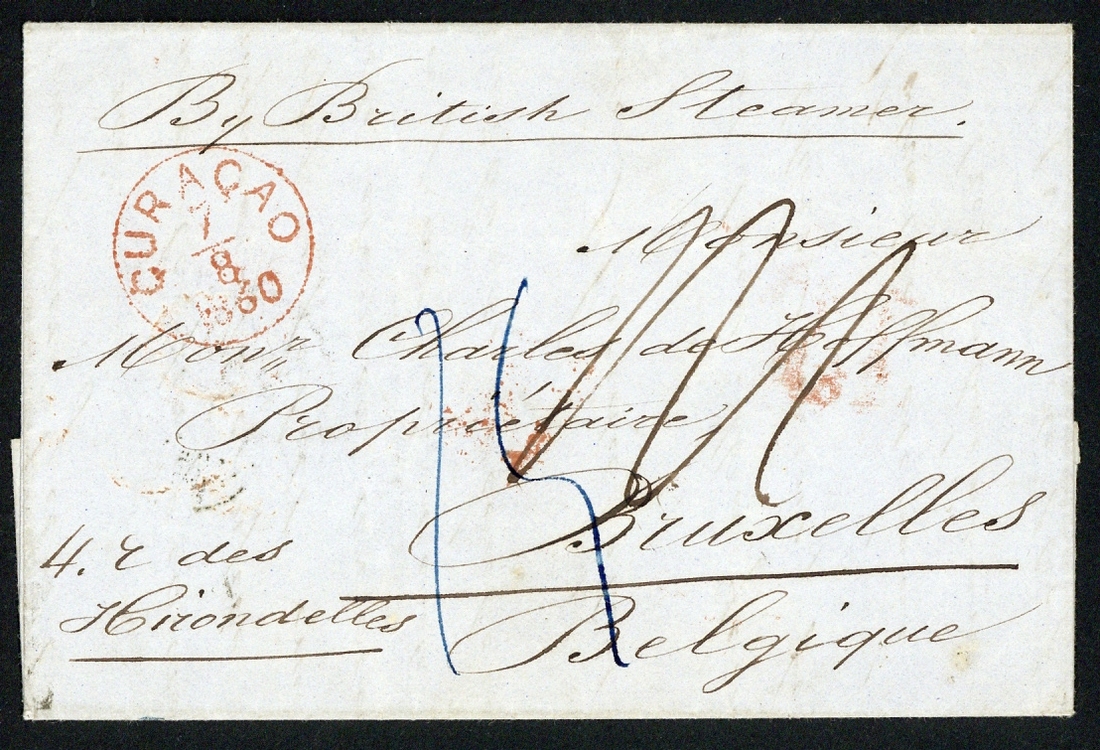 By British Steamer.
CURAÇAO
7/8
1860
Monsieur
Monr Charles de Hoffmann
Propriétaire
Bruxelles
4. r des
Hirondelles
Belgique